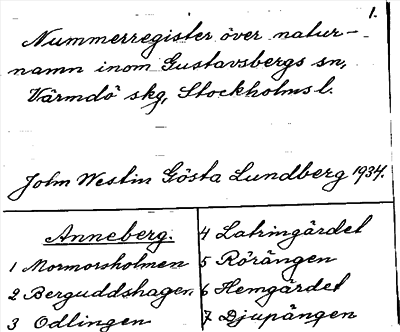 1.
Nummerregister över natur-
namn inom Gustavsbergs sn,
Värmdö skg, Stockholms l.
John Westin Gösta Lundberg 1934.
Anneberg.
1 Mormorsholmen
2 Berguddshagen
3 Odlingen
4 Latringärdet
5 Rörängen
6 Hemgärdet
7 Djupängen